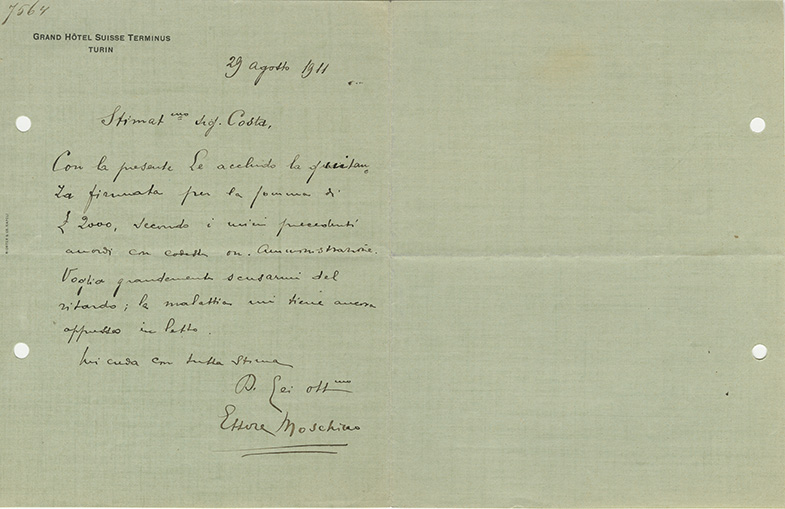 7564
GRAND HÔTEL SUISSE TERMINUS
TURIN
29 agosto 1911
Stimat mo sig. Costa,
Con la presente Le accludo la quitan-
za firmata per la somma di
£ 2000, secondo i miei precedenti
accordi con codesta on. Amministrazione.
Voglia grandemente scusarmi del
ritardo; la malattia mi tiene ancora
oppresso in letto.
Mi creda con tutta stima
D. Lei ott mo
Ettore Moschino